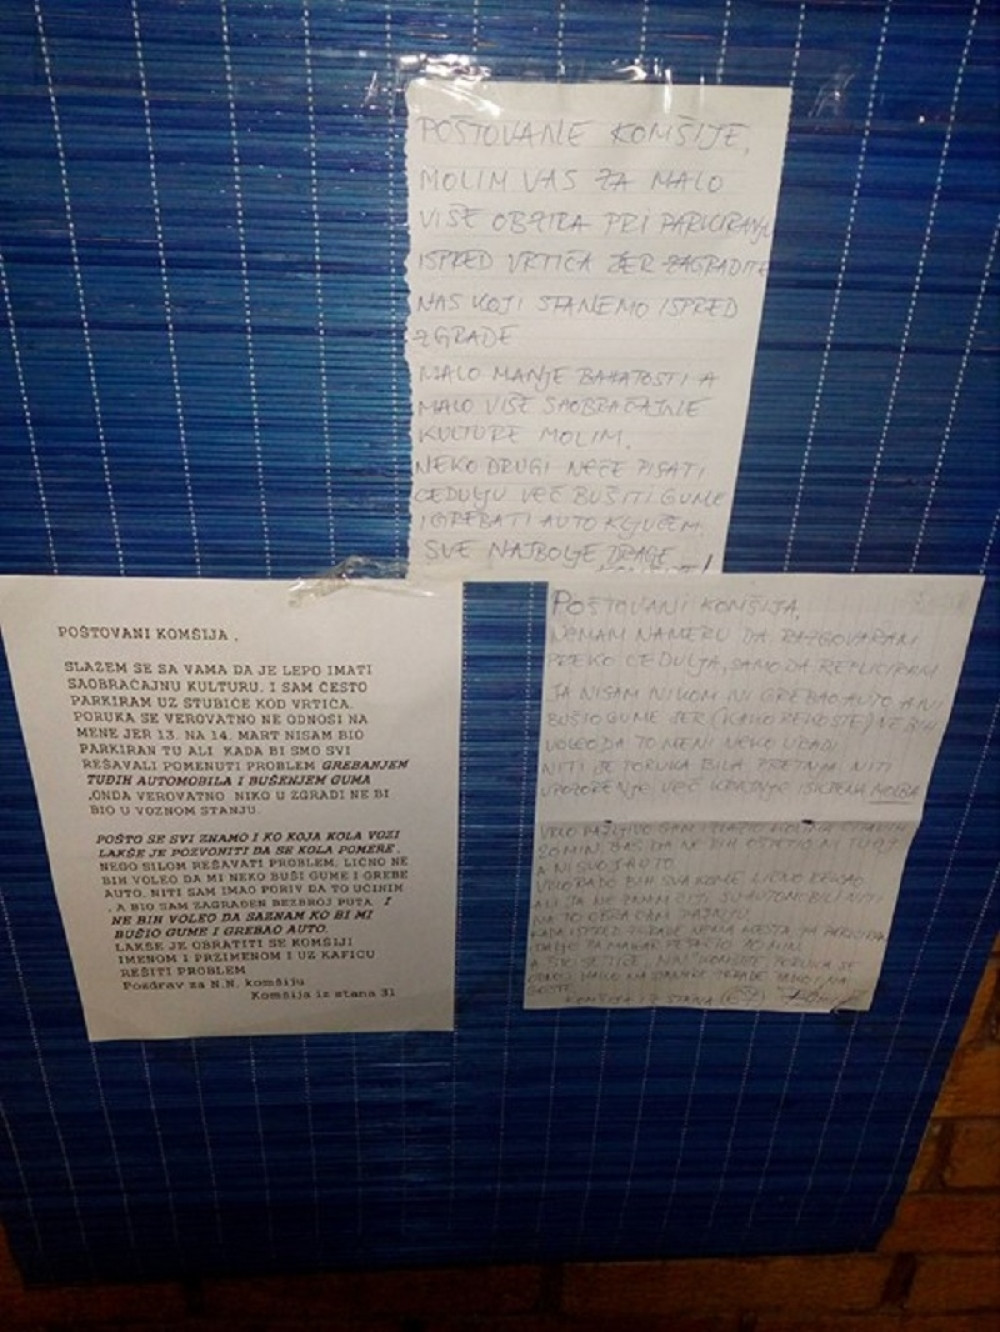 POŠTOVANE KOMŠIJE,
MOLIM VAS ZA MALO
VIŠE OBZIRA PRI PARKIRANJU
ISPRED VRTIĆA JER ZAGRADITE
NAS KOJI STANEMO ISPRED
ZGRADE
MALO MANJE BAHATOSTI A
MALO VIŠE SAOBRAĆAJNE
KULTURE MOLIM.
NEKO DRUGI NEĆE PISATI
CEDULJU VEĆ BUŠITI GUME
I GREBATI AUTO KLJUČEM.
SVE NAJBOLJE DRAGE
POŠTOVANI KOMŠIJA,
SLAŽEM SE SA VAMA DA JE LEPO IMATI
SAOBRAĆAJNU KULTURU. I SAM ČESTO
PARKIRAM UZ STUBIĆE KOD VRTIĆA.
PORUKA SE VEROVATNO NE ODNOSI NA
MENE JER 13. NA 14. MART NISAM BIO
PARKIRAN TU ALI KADA BI SMO SVI
REŠAVALI POMENUTI PROBLEM GREBANJEM
TUĐIH AUTOMOBILA I BUŠENJEM GUMA
,ONDA VEROVATNO NIKO U ZGRADI NE BI
BIO U VOZNOM STANJU.
POŠTO SE SVI ZNAMO I KO KOJA KOLA VOZI
LAKŠE JE POZVONITI DA SE KOLA POMERE,
NEGO SILOM REŠAVATI PROBLEM. LIČNO NE
BIH VOLEO DA MI NEKO BUŠI GUME I GREBE
AUTO. NITI SAM IMAO PORIV DA TO UČINIM
, A BIO SAM ZAGRAĐEN BEZBROJ PUTA I
NE BIH VOLEO DA SAZNAM KO BI MI
BUŠIO GUME I GREBAO AUTO.
LAKŠE JE OBRATITI SE KOMŠIJI
IMENOM I PRZIMENOM I UZ KAFICU
REŠITI PROBLEM
Pozdrav za N.N. komšiju
Komšija iz stana 31
POŠTOVANI KOMŠIJA,
NEMAM NAMERU DA RAZGOVARAM
PREKO CEDULJA, SAMO DA REPLICIRAM
JA NISAM NIKOM NI GREBAO AUTO A NI
BUŠIO GUME JER (KAKO REKOSTE) NE BIH
VOLEO DA TO MENI NEKO URADI
NITI JE PORUKA BILA PRETNJA NITI
UPOZORENJE VEĆ KRAJNJE ISKRENA MOLBA
VRLO PAŽLJIVO SAM IZLAZIO KOLIMA
20 MIN. BAŠ DA NE BIH OŠTETIO NI TUĐI
A NI SVOJ AUTO
VRLO RADO BIH SVAKOME LIČNO REKAO
ALI JA NE ZNAM ČIJI SU AUTOMOBILI NITI
NA TO OBRAĆAM PAŽNJU.
KADA ISPRED ZGRADE NEMA MESTA JA PARKIRAM
KOMŠIJA IZ STANA